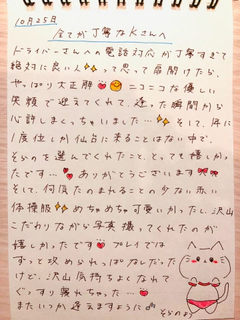 10月25日
全てが丁寧なKさんへ
ドライバーさんへの電話対応が丁寧すぎて
絶対に良い人✨って思って扉開けたら、
やっぱり大正解❤️😊ニコニコな優しい
笑顔で迎えてくれて、逢った瞬間から
心許しまくっちゃいました…✨そして、年に
1度位しか仙台に来ることはない中で、
そらのを選んでくれたこと、とっても嬉しかっ
たです…❤️ありがとうございます🎀
そして、何気たのまれることの少ない赤い
体操服✨めちゃめちゃ可愛いかったし、沢山
こだわりながら写真撮ってくれたのが
嬉しかったです❤️プレイでは
ずっと攻められっぱなしだった
けど、沢山気持ちよくなれて
ぐっすり寝れちゃった…❤️
またいつか逢えますように
そらのより